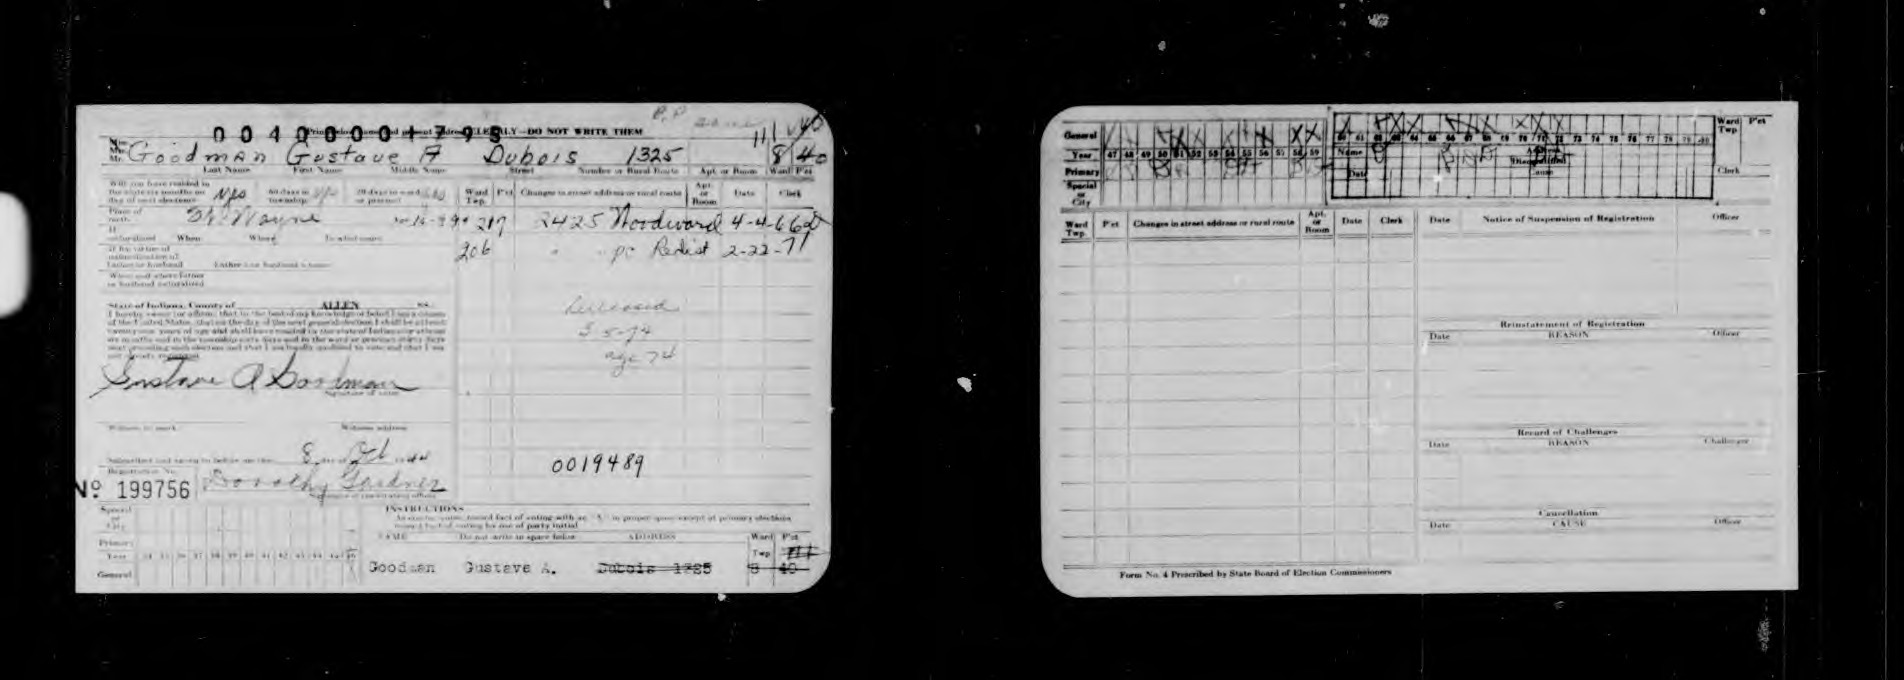 0040001795
LEGIBLY—DO NOT WRITE THEM
Goodman Gustave A Dubois 1325 8 40
Last Name First Name Middle Name Street Number or Rural Route Apt. or Room Ward Pct
Will you have resided in
the state six months on
day of next election yes 60 days in township yes 30 days in ward or precinct yes
Ward Twp. Pct Changes in street address or rural route Apt. or Room Date Clerk
Place of birth Ft. Wayne
217 2425 Woodward 4-4-66
If naturalized When Where
206 " " pc Redist 2-22-71
When and where father
or husband naturalized
State of Indiana, County of ALLEN ss.
I hereby swear (or affirm) that to the best of my knowledge or belief I am a citizen
of the United States, that on the day of the next general election I shall be at least
twenty-one years of age and shall have resided in the state of Indiana for at least
six months and in the township sixty days and in the ward or precinct thirty days
next preceding such election and that I am legally qualified to vote and that I am
not already registered.
Deceased
5-74
age 74
Gustave A Goodman
Signature of voter
Witness to mark Witness address
8 day of Oct
0019489
Registration No.
Nº 199756 Dorothy Gardner
Special or City
INSTRUCTIONS
Primary
NAME Do not write in space below ADDRESS Ward Twp Pct
Year 34 35 36 37 38 39 40 41 42 43 44 45 46
General
Goodman Gustave A. Dubois 1325 8 40
General
Year 47 48 49 50 51 52 53 54 55 56 57 58 59 60 61 62 63 64 65 66 67 68 69 70 71 72 73 74 75 76 77 78 79 80
Ward Twp. P'ct
Primary
Name
Date Disqualified Cause Clerk
Special or City
Ward Twp. P'ct Changes in street address or rural route Apt. or Room Date Clerk
Date Notice of Suspension of Registration Officer
Reinstatement of Registration
Date REASON Officer
Record of Challenges
Date REASON Challenger
Cancellation
Date CAUSE Officer
Form No. 4 Prescribed by State Board of Election Commissioners